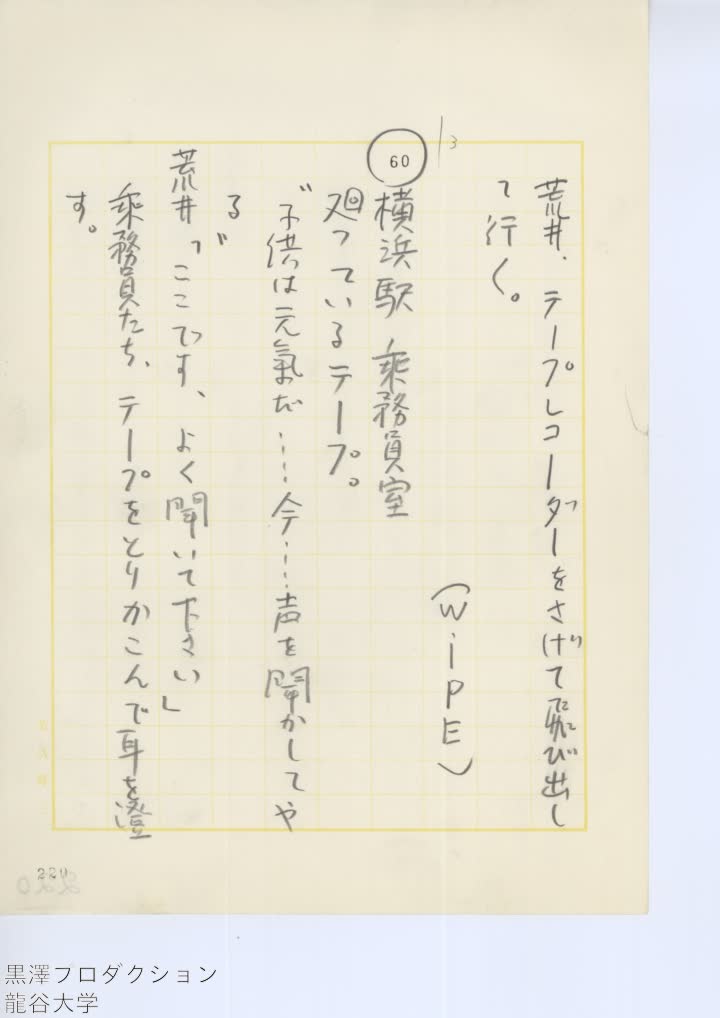 荒井、テープレコーダーをさげて飛び出し
て行く。
(WIPE)
13
60
横浜駅 乗務員室
廻っているテープ。
“子供は元氣だ……今……声を聞かしてや
る”
荒井「ここです、よく聞いて下さい」
乗務員たち、テープをとりかこんで耳を澄
す。
220
220
黒澤プロダクション
龍谷大学